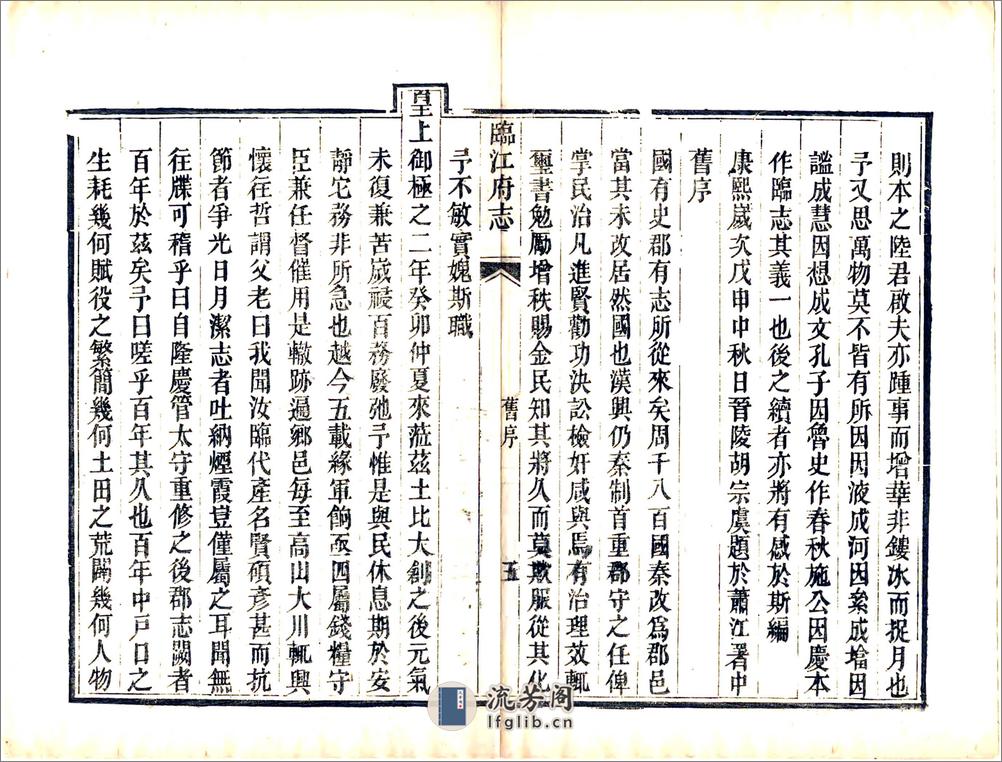 則本之陸君啟夫亦踵事而增華非鏤冰而捉月也
予又思萬物莫不皆有所因因液成河因絫成增因
謐成慧因想成文孔子因魯史作春秋施公因慶本
作臨志其義一也後之續者亦將有感於斯編
康熙歲次戊申中秋日晉陵胡宗虞題於蕭江署中
舊序
國有史郡有志所從來矣周千八百國秦改為郡邑
當其未改居然國也漢興仍秦制首重郡守之任俾
掌民治凡進賢勸功決訟檢奸咸與焉有治理效輒
璽書勉勵增秩賜金民知其將久而莫欺服從其化
臨江府志
舊序
五
予不敏實媿斯職
皇上御極之二年癸卯仲夏來蒞茲土比大創之後元氣
未復兼苦歲祲百務廢弛予惟是與民休息期於安
靜它務非所急也越今五載緣軍餉亟四屬錢糧守
臣兼任督催用是轍跡遍鄉邑每至高山大川輒興
懷往哲謂父老曰我聞汝臨代產名賢碩彥甚而抗
節者爭光日月潔志者吐納煙霞豈僅屬之耳聞無
往牒可稽乎曰自隆慶管太守重修之後郡志闕者
百年於茲矣予曰嗟乎百年其久也百年中戶口之
生耗幾何賦役之繁簡幾何土田之荒闢幾何人物
流芳阁
lfglib.cn